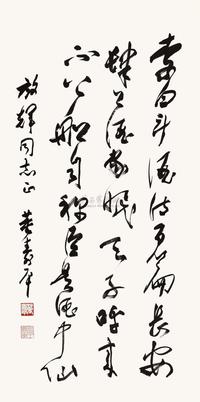 李白斗酒诗百篇长安
肆上酒家眠天子呼来
不上船自称臣是酒中仙
放辉同志正
董寿平